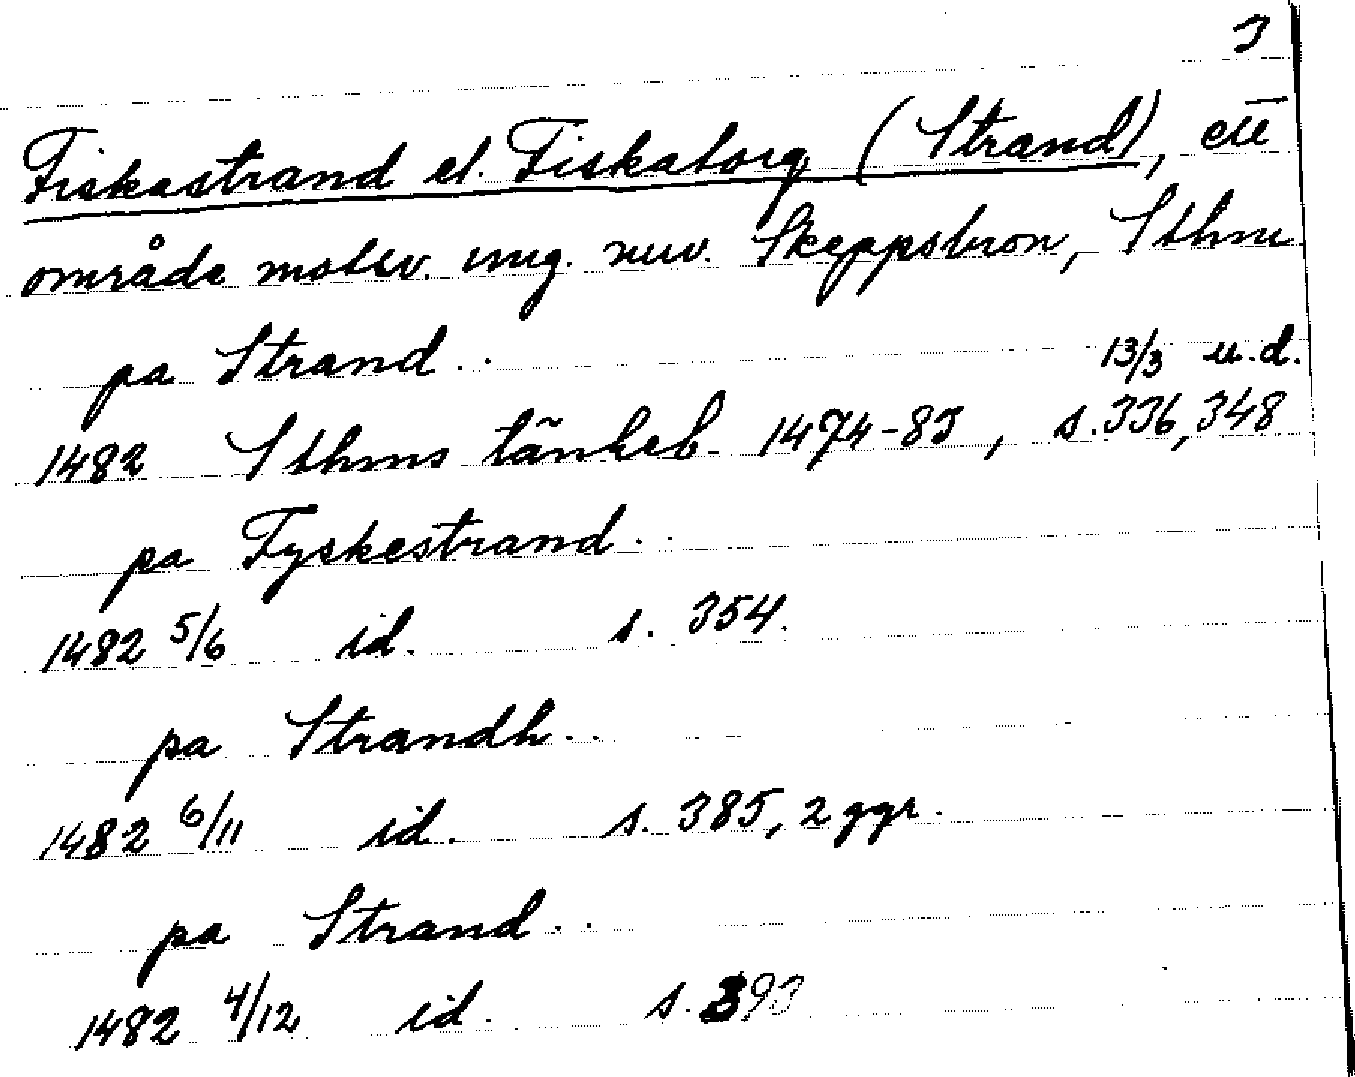 3
Fiskastrand el. Fiskatorg (Strand), ett
område motsv. ung. nuv. Skeppsbron, Sthm
pa Strand..
13/3 u.d.
1482 Sthms tänkeb. 1474-83, s.336,348
pa Fyskestrand..
1482 5/6 id. s. 354.
pa Strandh..
1482 6/11 id. s. 385, 2 ggr.
pa Strand..
1482 4/12 id. s. 393